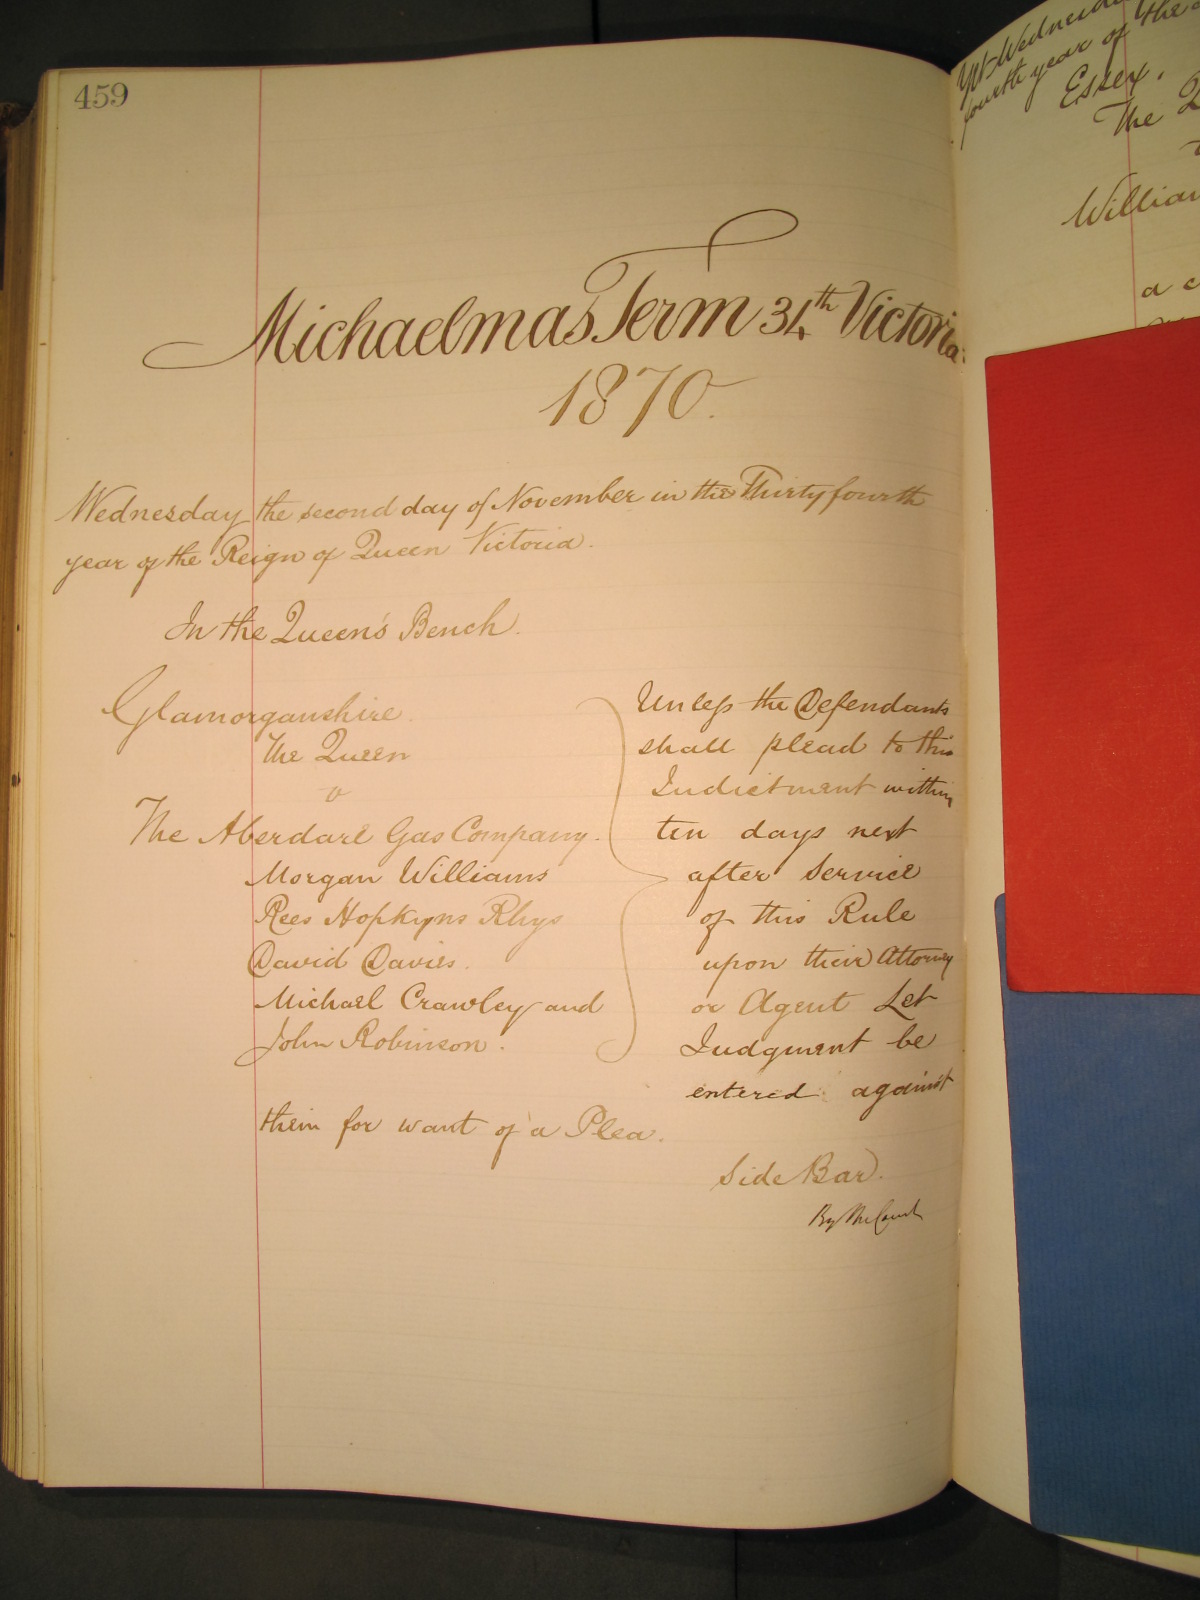 459
Michaelmas Term 34th Victoria.
1870.
Wednesday the second day of November in the Thirty fourth
year of the Reign of Queen Victoria.
In the Queen's Bench.
Glamorganshire.
The Queen
v
The Aberdare Gas Company.
Morgan Williams
Rees Hopkyns Rhys
David Davies.
Michael Crawley and
John Robinson.
Unless the Defendants
shall plead to this
Indictment within
ten days next
after service
of this Rule
upon their Attorney
or Agent Let
Judgment be
entered against
them for want of a Plea.
Side Bar.
By the Court
Yet Wednesday
fourth year of the
Essex.
The
William
a